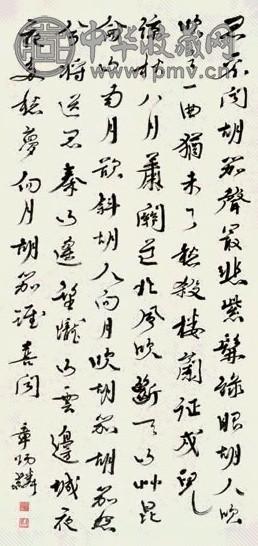 中华收藏网
www.pmv.cn
君不聞胡笳聲最悲紫髯綠眼胡人吹
吹之一曲猶未了愁殺樓蘭征戍兒
涼秋八月蕭關道北風吹斷天山艸昆
侖山南月欲斜胡人向月吹胡笳胡笳怨
兮將送君秦山遙望隴山雲邊城夜
夜多愁夢向月胡笳誰喜聞
章炳麟